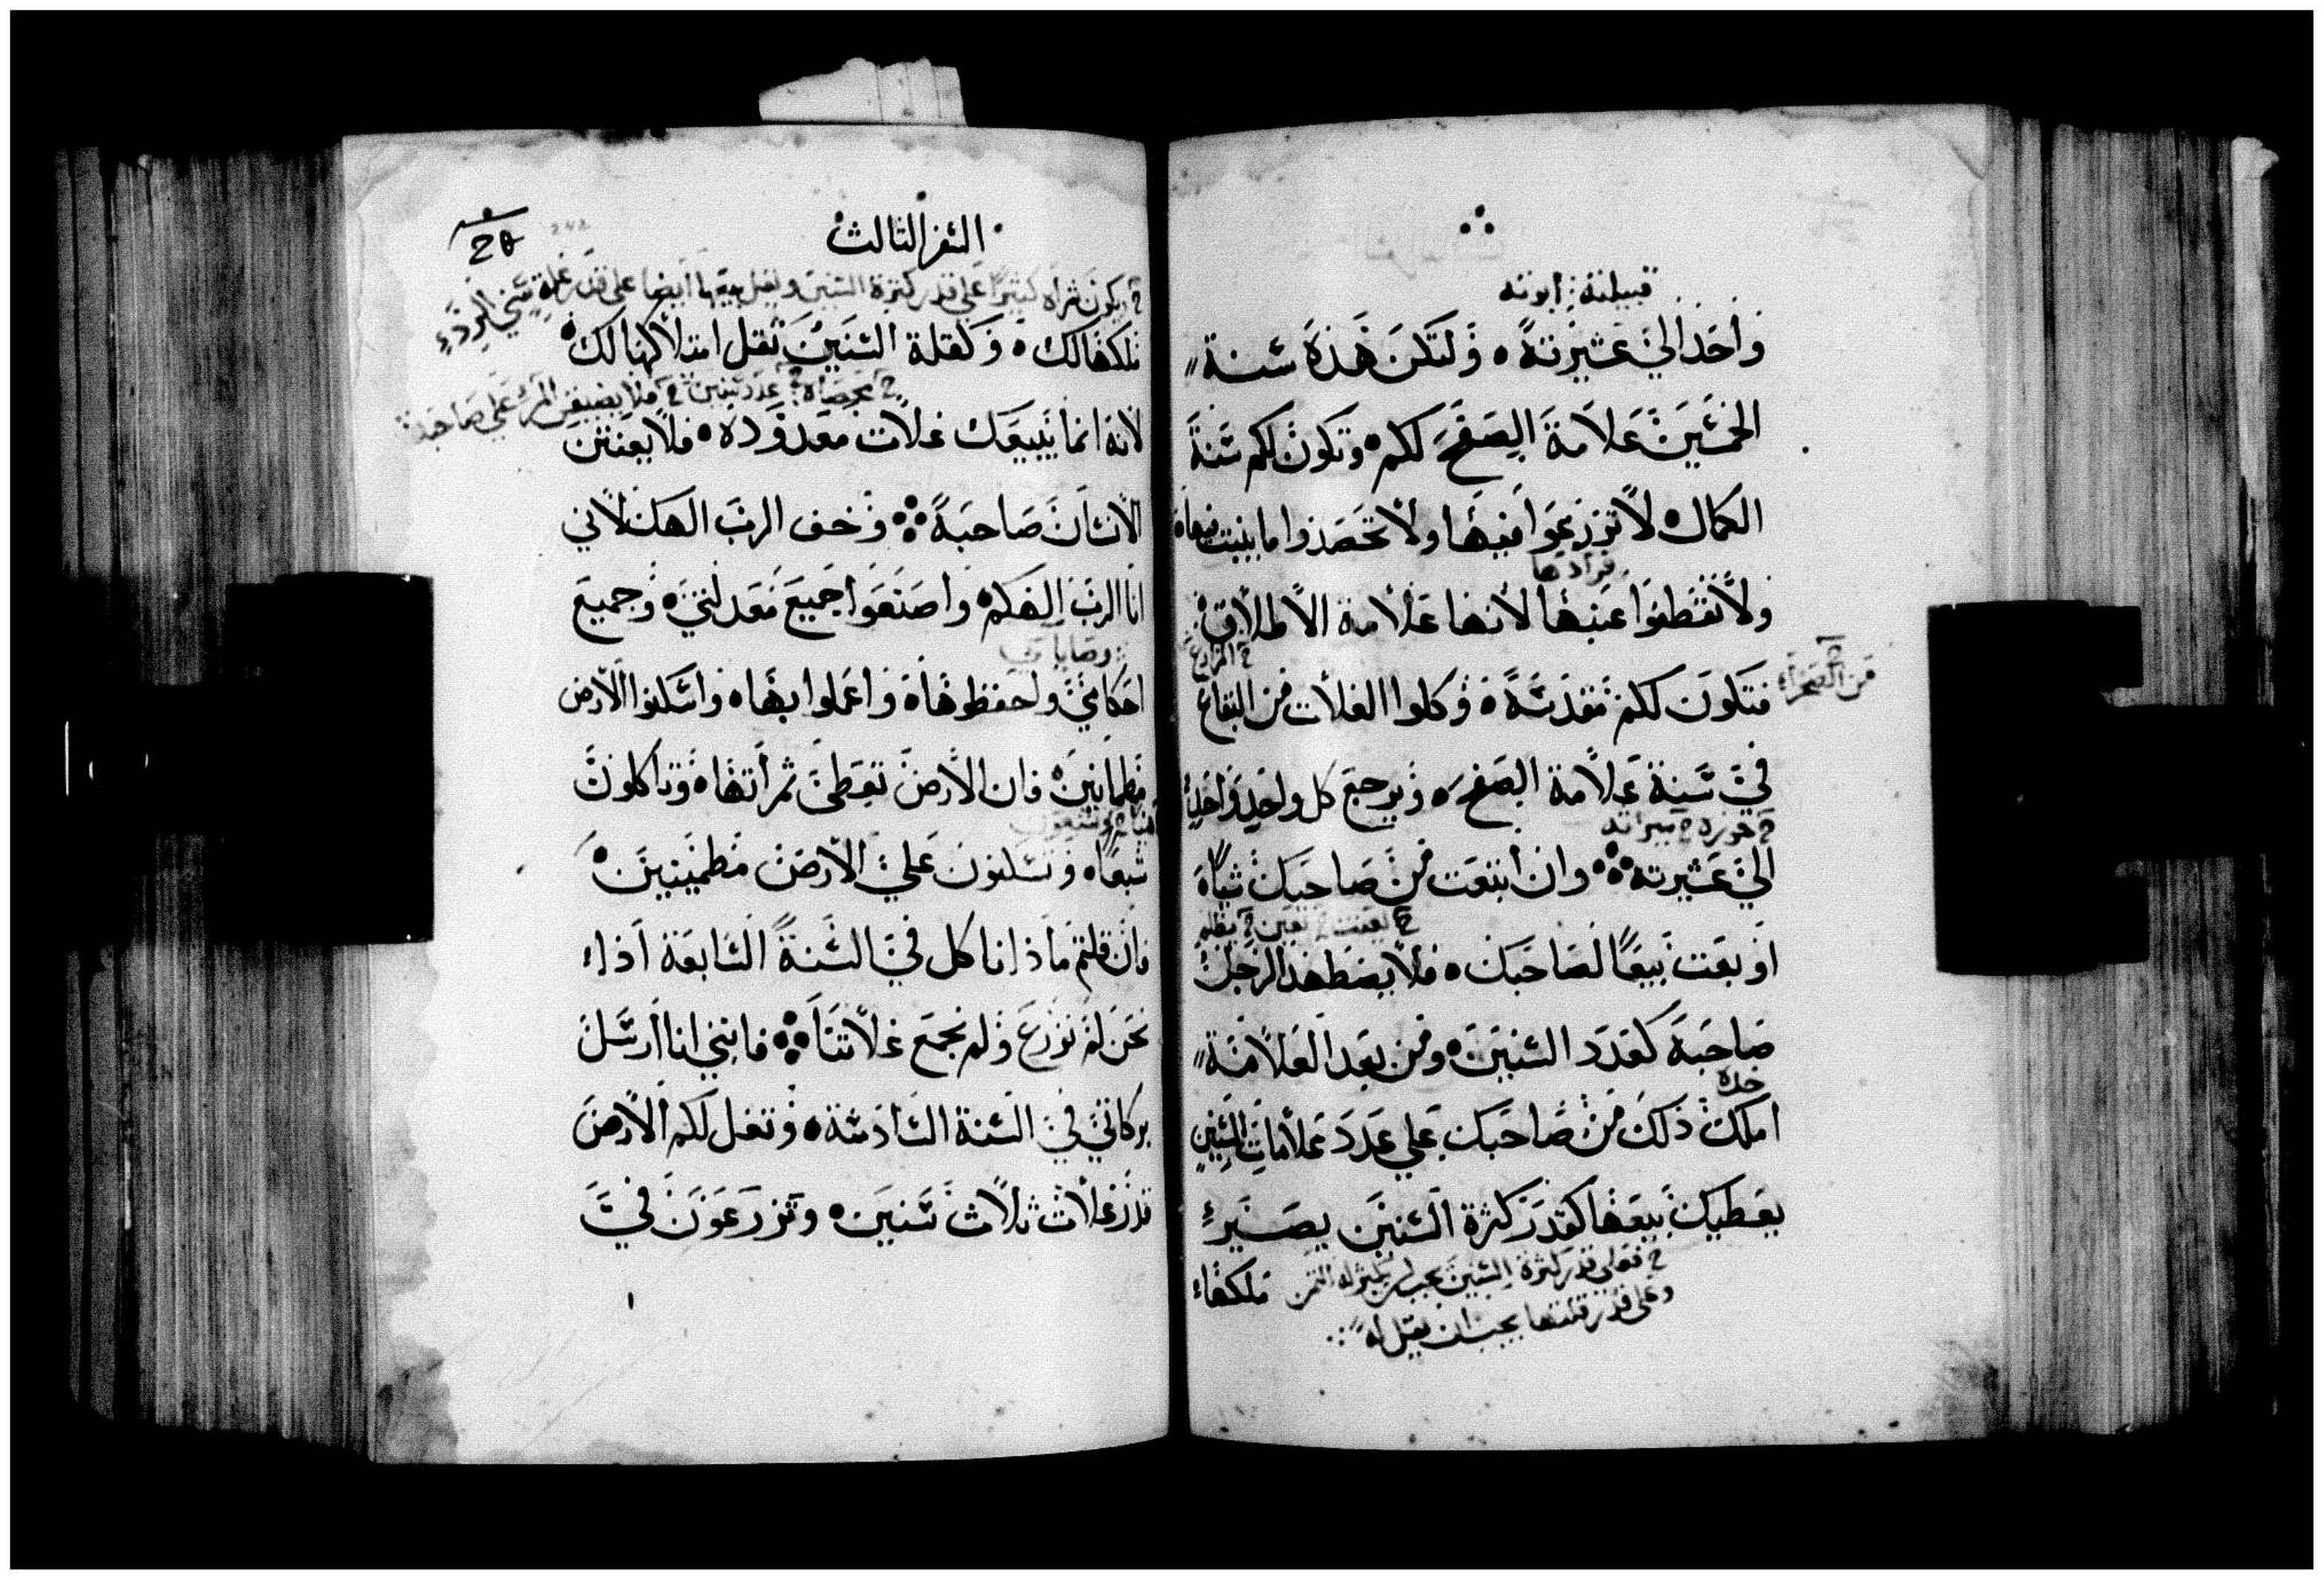 قبيلته : ابوته
واحد الي عشيرته ٥ ولتكن هذه سنة
الخمسين علامة الصفح لكم ٥ وتكون لكم سنة
الكمال ٥ لا تزرعوا فيها ولا تحصدوا ما ينبت فيها ٥
ولا تقطفوا عنبها لانها علامة الاطلاق ٥
من الصحراء
المزارع
فتكون لكم مقدسة ٥ وكلوا الغلات من البقاع
في سنة علامة الصفح ٥ ويرجع كل واحد واحد
حوزه ميراثه
الي عشيرته ⁘ وان ابتعت من صاحبك شيا ٥
يظلم
او بعت بيعا لصاحبك ٥ فلا يضطهد الرجل
صاحبه كعدد السنين ٥ ومن بعد العلامة
خذه
املك ذلك من صاحبك علي عدد علامات السنين
يعطيك بيعها كقدر كثرة السنين يصير
فعلي قدر كثرة السنين يجب ان يكثر له الثمن
ملكها
وعلي قدر قلتها يجب ان يقل له
السفر الثالث
يكون شراه كثيرا علي قدر كثرة السنين
ملكها لك ٥ وكقلة السنين تقل امتلاكها لك ٥
عدد سنين
علي صاحبه
لانه انما يبيعك غلات معدوده ٥ فلا يعنتن
الانسان صاحبه ⁘ وخف الرب الهك لاني
انا الرب الهكم ٥ واصنعوا جميع معدلتي ٥ وجميع
وصاياي
احكامي واحفظوها ٥ واعملوا بها ٥ واسكنوا الارض
مطمانين ٥ فان الارض تعطي ثمراتها ٥ وتاكلون
شبعا ٥ وتسكنون علي الارض مطمينين ٥
فان قلتم ماذا ناكل في السنة السابعة اذا
نحن لم نزرع ولم نجمع غلاتنا ⁘ فانني انا ارسل
بركاتي في السنة السادسة ٥ وتغل لكم الارض
قدر غلات ثلاث سنين ٥ وتزرعون في